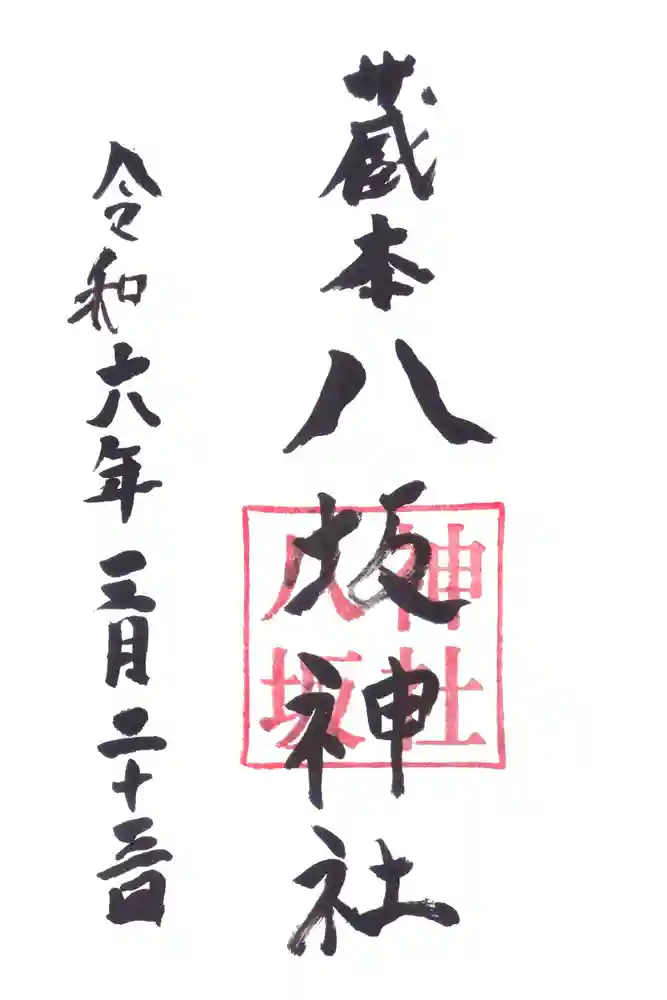 蔵本八坂神社
令和六年三月二十三日
八坂
神社